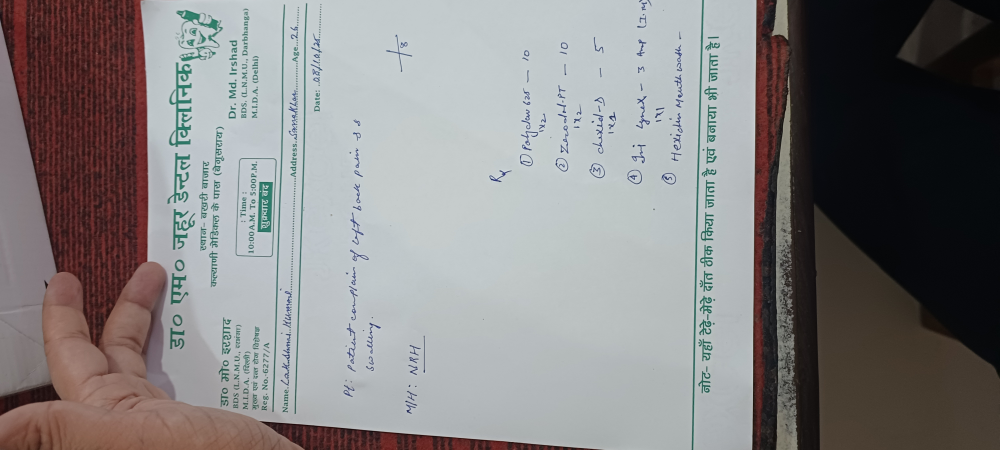 डा० एम० जहूर डेन्टल क्लिनिक
स्थान- बखरी बाजार
कल्याणी मेडिकल के पास (बेगूसराय)
डा० मो० इरशाद
BDS (L.N.M.U., दरभंगा)
M.I.D.A. (दिल्ली)
मुख एवं दन्त रोग विशेषज्ञ
Reg. No.-6277/A
: Time :
10:00A.M. To 5:00P.M.
शुक्रवार बंद
Dr. Md. Irshad
BDS. (L.N.M.U., Darbhanga)
M.I.D.A. (Delhi)
Name. Lakshmi Kumari Address. Age. 26
Date:
Pt: Patient complain of left back pain
swalling.
M/H: NRH
8
Rx
① Polyclav 625 — 10
1x2
② Zerodol-PT — 10
1x2
③ - 5
1x1
④ Inj - 3 Amp (I.M)
1x1
⑤ Hexidin Mouth wash -
नोट- यहाँ टेढ़े-मेढ़े दाँत ठीक किया जाता है एवं बनाया भी जाता है।